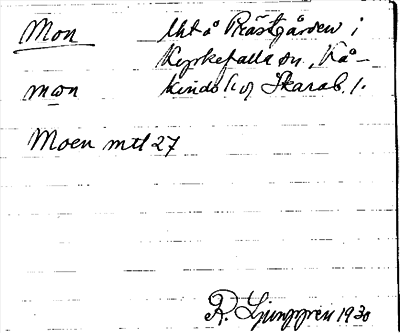 Mon Ekt å Prästgården i
Kyrkefalla sn., Kå-
mon kinds hd Skarab. l.
Moen mtl 27
R. Ljunggren 1930